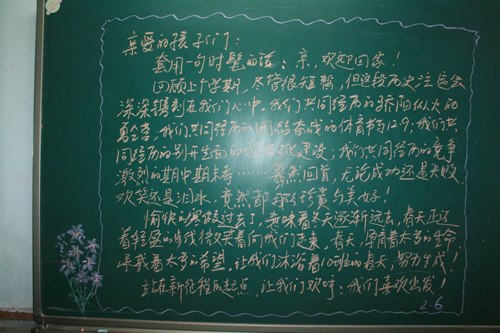 亲爱的孩子们：
套用一句时髦的话：亲，欢迎回家！
回顾上个学期，尽管很短暂，但这段历史注定会
深深镌刻在我们心中，我们共同经历的骄阳似火的
军训，我们共同经历的团结奋战的体育节129；我们共
同经历的别开生面的文化建设；我们共同经历的竞争
激烈的期中期末考……蓦然回首，无论成功还是失败
欢笑还是泪水，竟然都那么珍贵与美好！
愉快的寒假过去了，意味着冬天逐渐远去，春天正迈
着轻盈的步伐微笑着向我们走来，春天，孕育着太多的生命
承载着太多的希望，让我们沐浴着10班的春天，努力生成！
站在新征程的起点，让我们欢呼：我们喜欢出发！
2.6